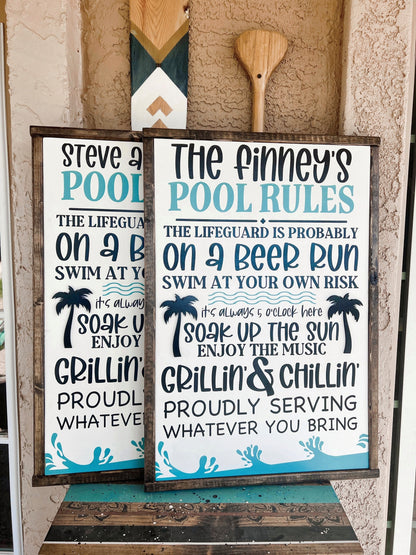 STEVE a
POOL
THE LIFEGUARD
ON a B
SWIM AT YOUR
it's always
SOAK U
ENJOY
GRILLIN'
PROUDLY
WHATEVER
THE FINNEY'S
POOL RULES
THE LIFEGUARD IS PROBABLY
ON a BEER RUN
SWIM AT YOUR OWN RISK
it's always 5 o'clock here
SOAK UP THE SUN
ENJOY THE MUSIC
GRILLIN' & CHILLIN'
PROUDLY SERVING
WHATEVER YOU BRING